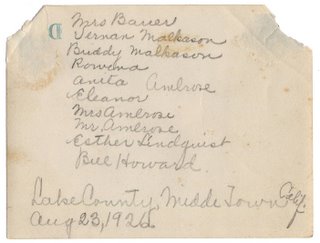 Mrs Bauer
Vernan Malkason
Buddy Malkason
Rowena
Anita Ambrose
Eleanor
Mrs Ambrose
Mr. Ambrose
Esther Lindquist
Bill Howard.
Lake County, Midde Town Calif.
Aug 23, 1926
D